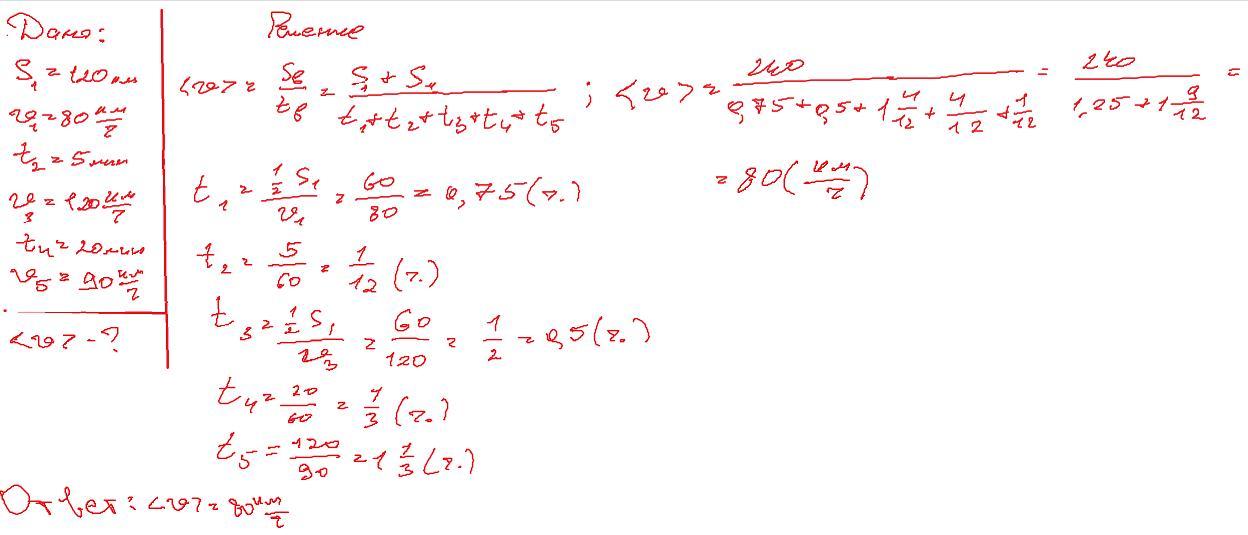 Дано:
S₁ = 120 км
v₁ = 80 км/ч
t₂ = 5 мин
v₃ = 120 км/ч
t₄ = 20 мин
v₅ = 90 км/ч
<v> - ?
Решение
<v> = Sв/tв = (S₁ + S₁)/(t₁ + t₂ + t₃ + t₄ + t₅) ; <v> = 240/(0,75 + 0,5 + 1 4/12 + 4/12 + 1/12) = 240/(1,25 + 1 9/12) =
= 80 (км/ч)
t₁ = (1/2 S₁)/v₁ = 60/80 = 0,75 (ч.)
t₂ = 5/60 = 1/12 (ч.)
t₃ = (1/2 S₁)/v₃ = 60/120 = 1/2 = 0,5 (ч.)
t₄ = 20/60 = 1/3 (ч.)
t₅ = 120/90 = 1 1/3 (ч.)
Ответ: <v> = 80 км/ч